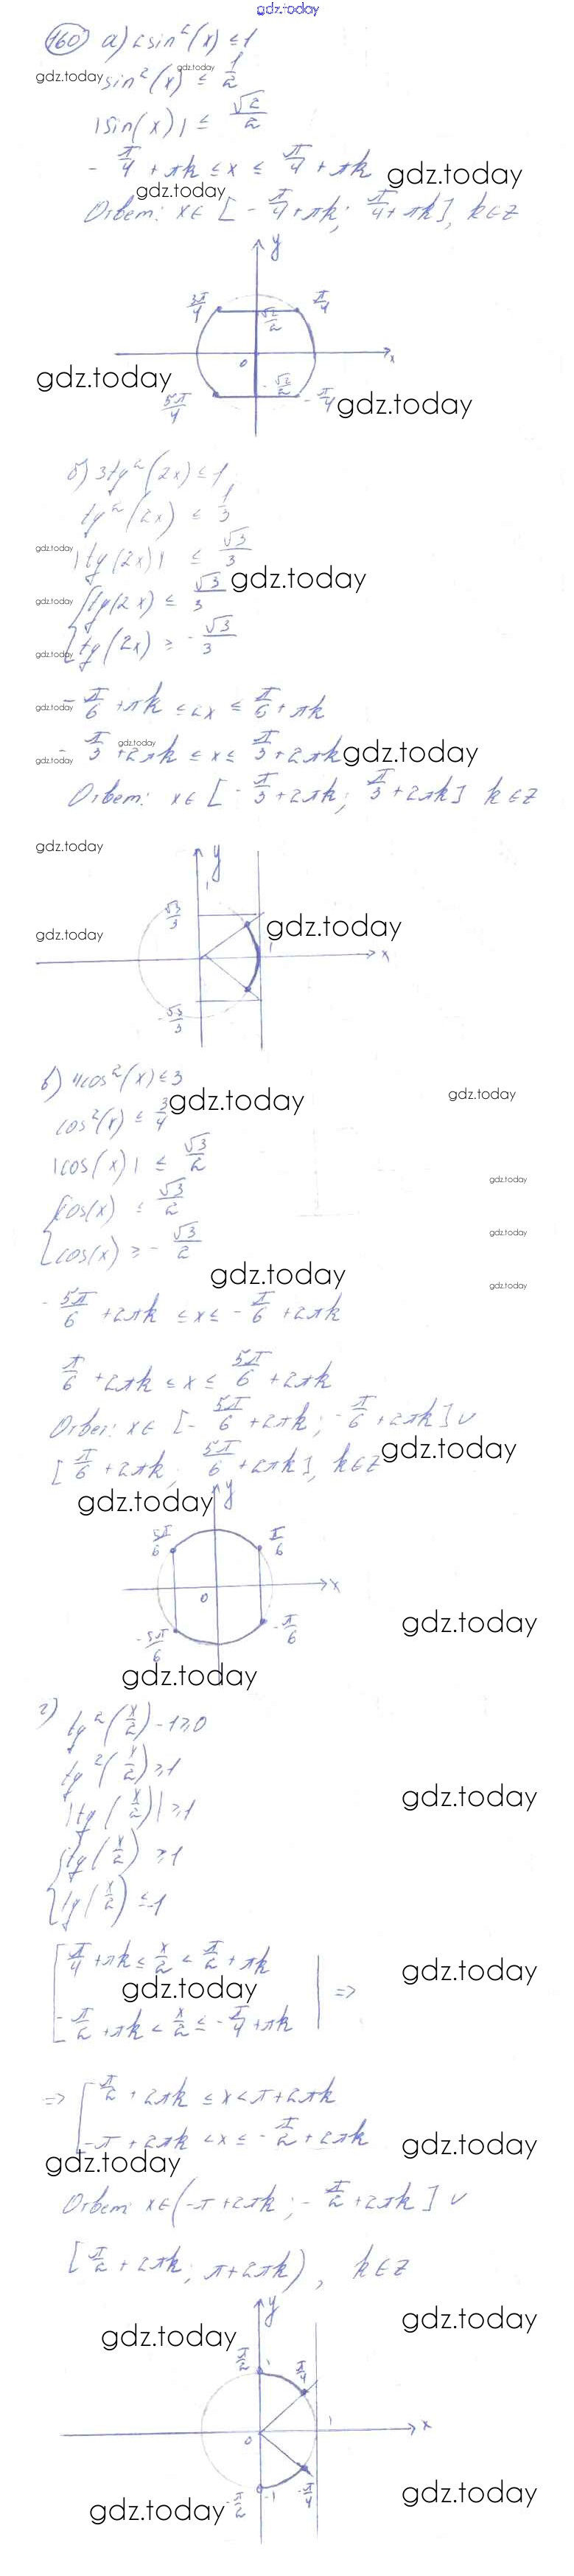 gdz.today
160 а) 2sin²(x) ≤ 1
gdz.today sin²(x) ≤ 1/2 gdz.today
|sin(x)| ≤ √2/2
- π/4 + πk ≤ x ≤ π/4 + πk gdz.today
gdz.today
Ответ: x∈ [ - π/4 + πk; π/4 + πk], k∈Z
y
3π/4 π/4
√2/2
0 x
gdz.today
5π/4 - √2/2 - π/4 gdz.today
б) 3tg²(2x) ≤ 1
tg²(2x) ≤ 1/3
gdz.today |tg(2x)| ≤ √3/3
gdz.today
gdz.today { tg(2x) ≤ √3/3
gdz.today tg(2x) ≥ - √3/3
gdz.today - π/6 + πk ≤ 2x ≤ π/6 + πk
gdz.today
gdz.today - π/3 + 2πk ≤ x ≤ π/3 + 2πk gdz.today
Ответ: x∈ [ - π/3 + 2πk; π/3 + 2πk] k∈Z
gdz.today
y
1
√3/3
gdz.today gdz.today
1 x
- √3/3
в) 4cos²(x) ≤ 3
cos²(x) ≤ 3/4 gdz.today gdz.today
|cos(x)| ≤ √3/2
gdz.today
{ cos(x) ≤ √3/2
gdz.today
cos(x) ≥ - √3/2
gdz.today
gdz.today
- 5π/6 + 2πk ≤ x ≤ - π/6 + 2πk
π/6 + 2πk ≤ x ≤ 5π/6 + 2πk
Ответ: x∈ [ - 5π/6 + 2πk; - π/6 + 2πk] ∪
[ π/6 + 2πk; 5π/6 + 2πk], k∈Z gdz.today
gdz.today y
5π/6 π/6
0 x
gdz.today
- 5π/6 - π/6
gdz.today
г) tg²(x/2) - 1 ≥ 0
tg²(x/2) ≥ 1
gdz.today
|tg(x/2)| ≥ 1
tg(x/2) ≥ 1
tg(x/2) ≤ -1
[ π/4 + πk ≤ x/2 < π/2 + πk
gdz.today gdz.today
- π/2 + πk < x/2 ≤ - π/4 + πk | =>
=> [ π/2 + 2πk ≤ x < π + 2πk
- π + 2πk < x ≤ - π/2 + 2πk gdz.today
gdz.today
Ответ: x∈ (-π + 2πk; - π/2 + 2πk] ∪
[ π/2 + 2πk; π + 2πk), k∈Z
y gdz.today
gdz.today
π/2 1 π/4
0 1 x
gdz.today
gdz.today - π/2 -1 - π/4